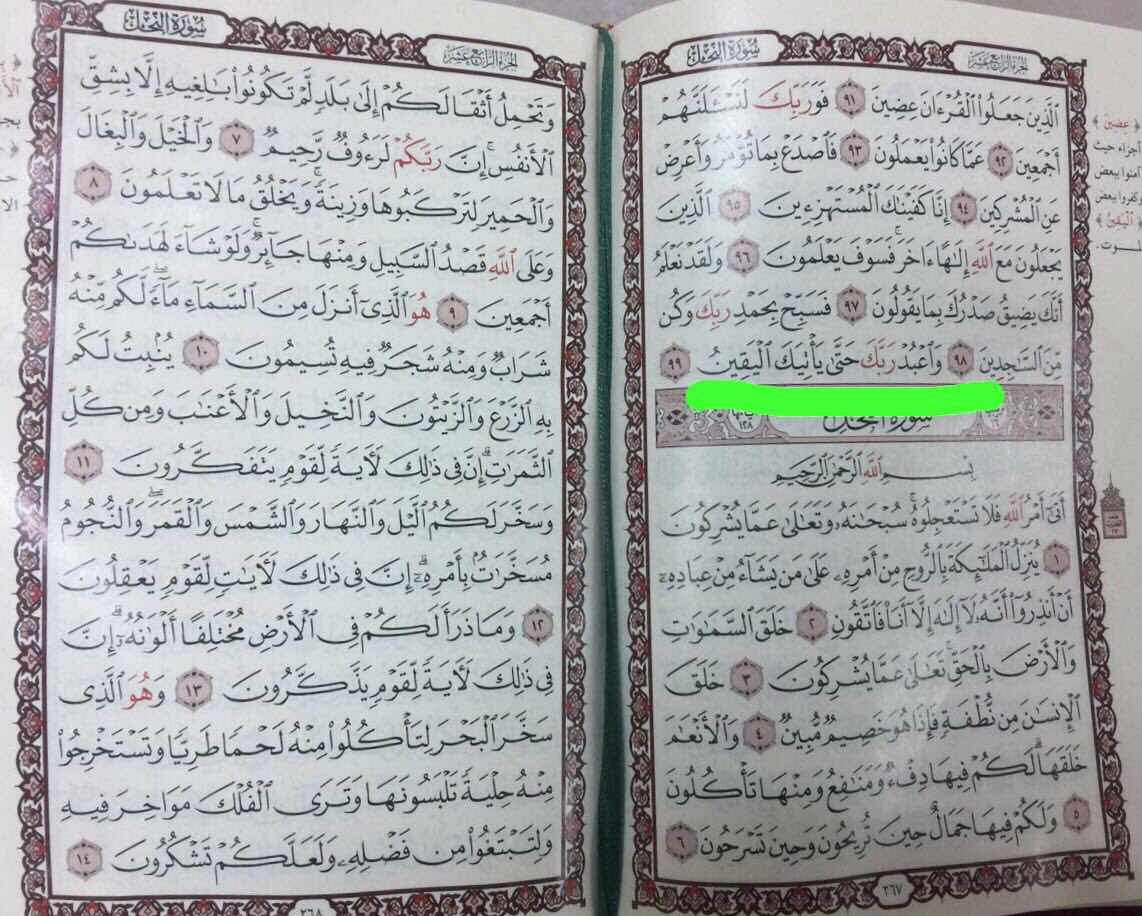 سُورَةُ النَّحْلِ
الجُزْءُ الرَّابِعَ عَشَرَ
الَّذِينَ جَعَلُوا۟ الْقُرْءَانَ عِضِينَ ٩١ فَوَرَبِّكَ لَنَسْـَٔلَنَّهُمْ
أَجْمَعِينَ ٩٢ عَمَّا كَانُوا۟ يَعْمَلُونَ ٩٣ فَاصْدَعْ بِمَا تُؤْمَرُ وَأَعْرِضْ
عَنِ الْمُشْرِكِينَ ٩٤ إِنَّا كَفَيْنَٰكَ الْمُسْتَهْزِءِينَ ٩٥ الَّذِينَ
يَجْعَلُونَ مَعَ اللَّهِ إِلَٰهًا ءَاخَرَ ۚ فَسَوْفَ يَعْلَمُونَ ٩٦ وَلَقَدْ نَعْلَمُ
أَنَّكَ يَضِيقُ صَدْرُكَ بِمَا يَقُولُونَ ٩٧ فَسَبِّحْ بِحَمْدِ رَبِّكَ وَكُن
مِّنَ السَّٰجِدِينَ ٩٨ وَاعْبُدْ رَبَّكَ حَتَّىٰ يَأْتِيَكَ الْيَقِينُ ٩٩
سُورَةُ النَّحْلِ
١٢٨
بِسْمِ اللَّهِ الرَّحْمَٰنِ الرَّحِيمِ
أَتَىٰٓ أَمْرُ اللَّهِ فَلَا تَسْتَعْجِلُوهُ ۚ سُبْحَٰنَهُۥ وَتَعَٰلَىٰ عَمَّا يُشْرِكُونَ
١ يُنَزِّلُ الْمَلَٰٓئِكَةَ بِالرُّوحِ مِنْ أَمْرِهِۦ عَلَىٰ مَن يَشَآءُ مِنْ عِبَادِهِۦٓ
أَنْ أَنذِرُوٓا۟ أَنَّهُۥ لَآ إِلَٰهَ إِلَّآ أَنَا۠ فَاتَّقُونِ ٢ خَلَقَ السَّمَٰوَٰتِ
وَالْأَرْضَ بِالْحَقِّ ۚ تَعَٰلَىٰ عَمَّا يُشْرِكُونَ ٣ خَلَقَ
الْإِنسَٰنَ مِن نُّطْفَةٍ فَإِذَا هُوَ خَصِيمٌ مُّبِينٌ ٤ وَالْأَنْعَٰمَ
خَلَقَهَا ۗ لَكُمْ فِيهَا دِفْءٌ وَمَنَٰفِعُ وَمِنْهَا تَأْكُلُونَ
٥ وَلَكُمْ فِيهَا جَمَالٌ حِينَ تُرِيحُونَ وَحِينَ تَسْرَحُونَ ٦
٢٦٧
﴿ عِضِينَ ﴾
أجزاء حيث
آمنوا ببعض
وكفروا ببعض
﴿ الْيَقِينُ ﴾
الموت.
سُورَةُ النَّحْلِ
الجُزْءُ الرَّابِعَ عَشَرَ
وَتَحْمِلُ أَثْقَالَكُمْ إِلَىٰ بَلَدٍ لَّمْ تَكُونُوا۟ بَٰلِغِيهِ إِلَّا بِشِقِّ
الْأَنفُسِ ۚ إِنَّ رَبَّكُمْ لَرَءُوفٌ رَّحِيمٌ ٧ وَالْخَيْلَ وَالْبِغَالَ
وَالْحَمِيرَ لِتَرْكَبُوهَا وَزِينَةً ۚ وَيَخْلُقُ مَا لَا تَعْلَمُونَ ٨
وَعَلَى اللَّهِ قَصْدُ السَّبِيلِ وَمِنْهَا جَآئِرٌ ۚ وَلَوْ شَآءَ لَهَدَىٰكُمْ
أَجْمَعِينَ ٩ هُوَ الَّذِىٓ أَنزَلَ مِنَ السَّمَآءِ مَآءً ۖ لَّكُم مِّنْهُ
شَرَابٌ وَمِنْهُ شَجَرٌ فِيهِ تُسِيمُونَ ١٠ يُنۢبِتُ لَكُم
بِهِ الزَّرْعَ وَالزَّيْتُونَ وَالنَّخِيلَ وَالْأَعْنَٰبَ وَمِن كُلِّ
الثَّمَرَٰتِ ۗ إِنَّ فِى ذَٰلِكَ لَءَايَةً لِّقَوْمٍ يَتَفَكَّرُونَ ١١
وَسَخَّرَ لَكُمُ الَّيْلَ وَالنَّهَارَ وَالشَّمْسَ وَالْقَمَرَ ۖ وَالنُّجُومُ
مُسَخَّرَٰتٌۢ بِأَمْرِهِۦٓ ۗ إِنَّ فِى ذَٰلِكَ لَءَايَٰتٍ لِّقَوْمٍ يَعْقِلُونَ
١٢ وَمَا ذَرَأَ لَكُمْ فِى الْأَرْضِ مُخْتَلِفًا أَلْوَٰنُهُۥٓ ۗ إِنَّ
فِى ذَٰلِكَ لَءَايَةً لِّقَوْمٍ يَذَّكَّرُونَ ١٣ وَهُوَ الَّذِى
سَخَّرَ الْبَحْرَ لِتَأْكُلُوا۟ مِنْهُ لَحْمًا طَرِيًّا وَتَسْتَخْرِجُوا۟
مِنْهُ حِلْيَةً تَلْبَسُونَهَا وَتَرَى الْفُلْكَ مَوَاخِرَ فِيهِ
وَلِتَبْتَغُوا۟ مِن فَضْلِهِۦ وَلَعَلَّكُمْ تَشْكُرُونَ ١٤
٢٦٨